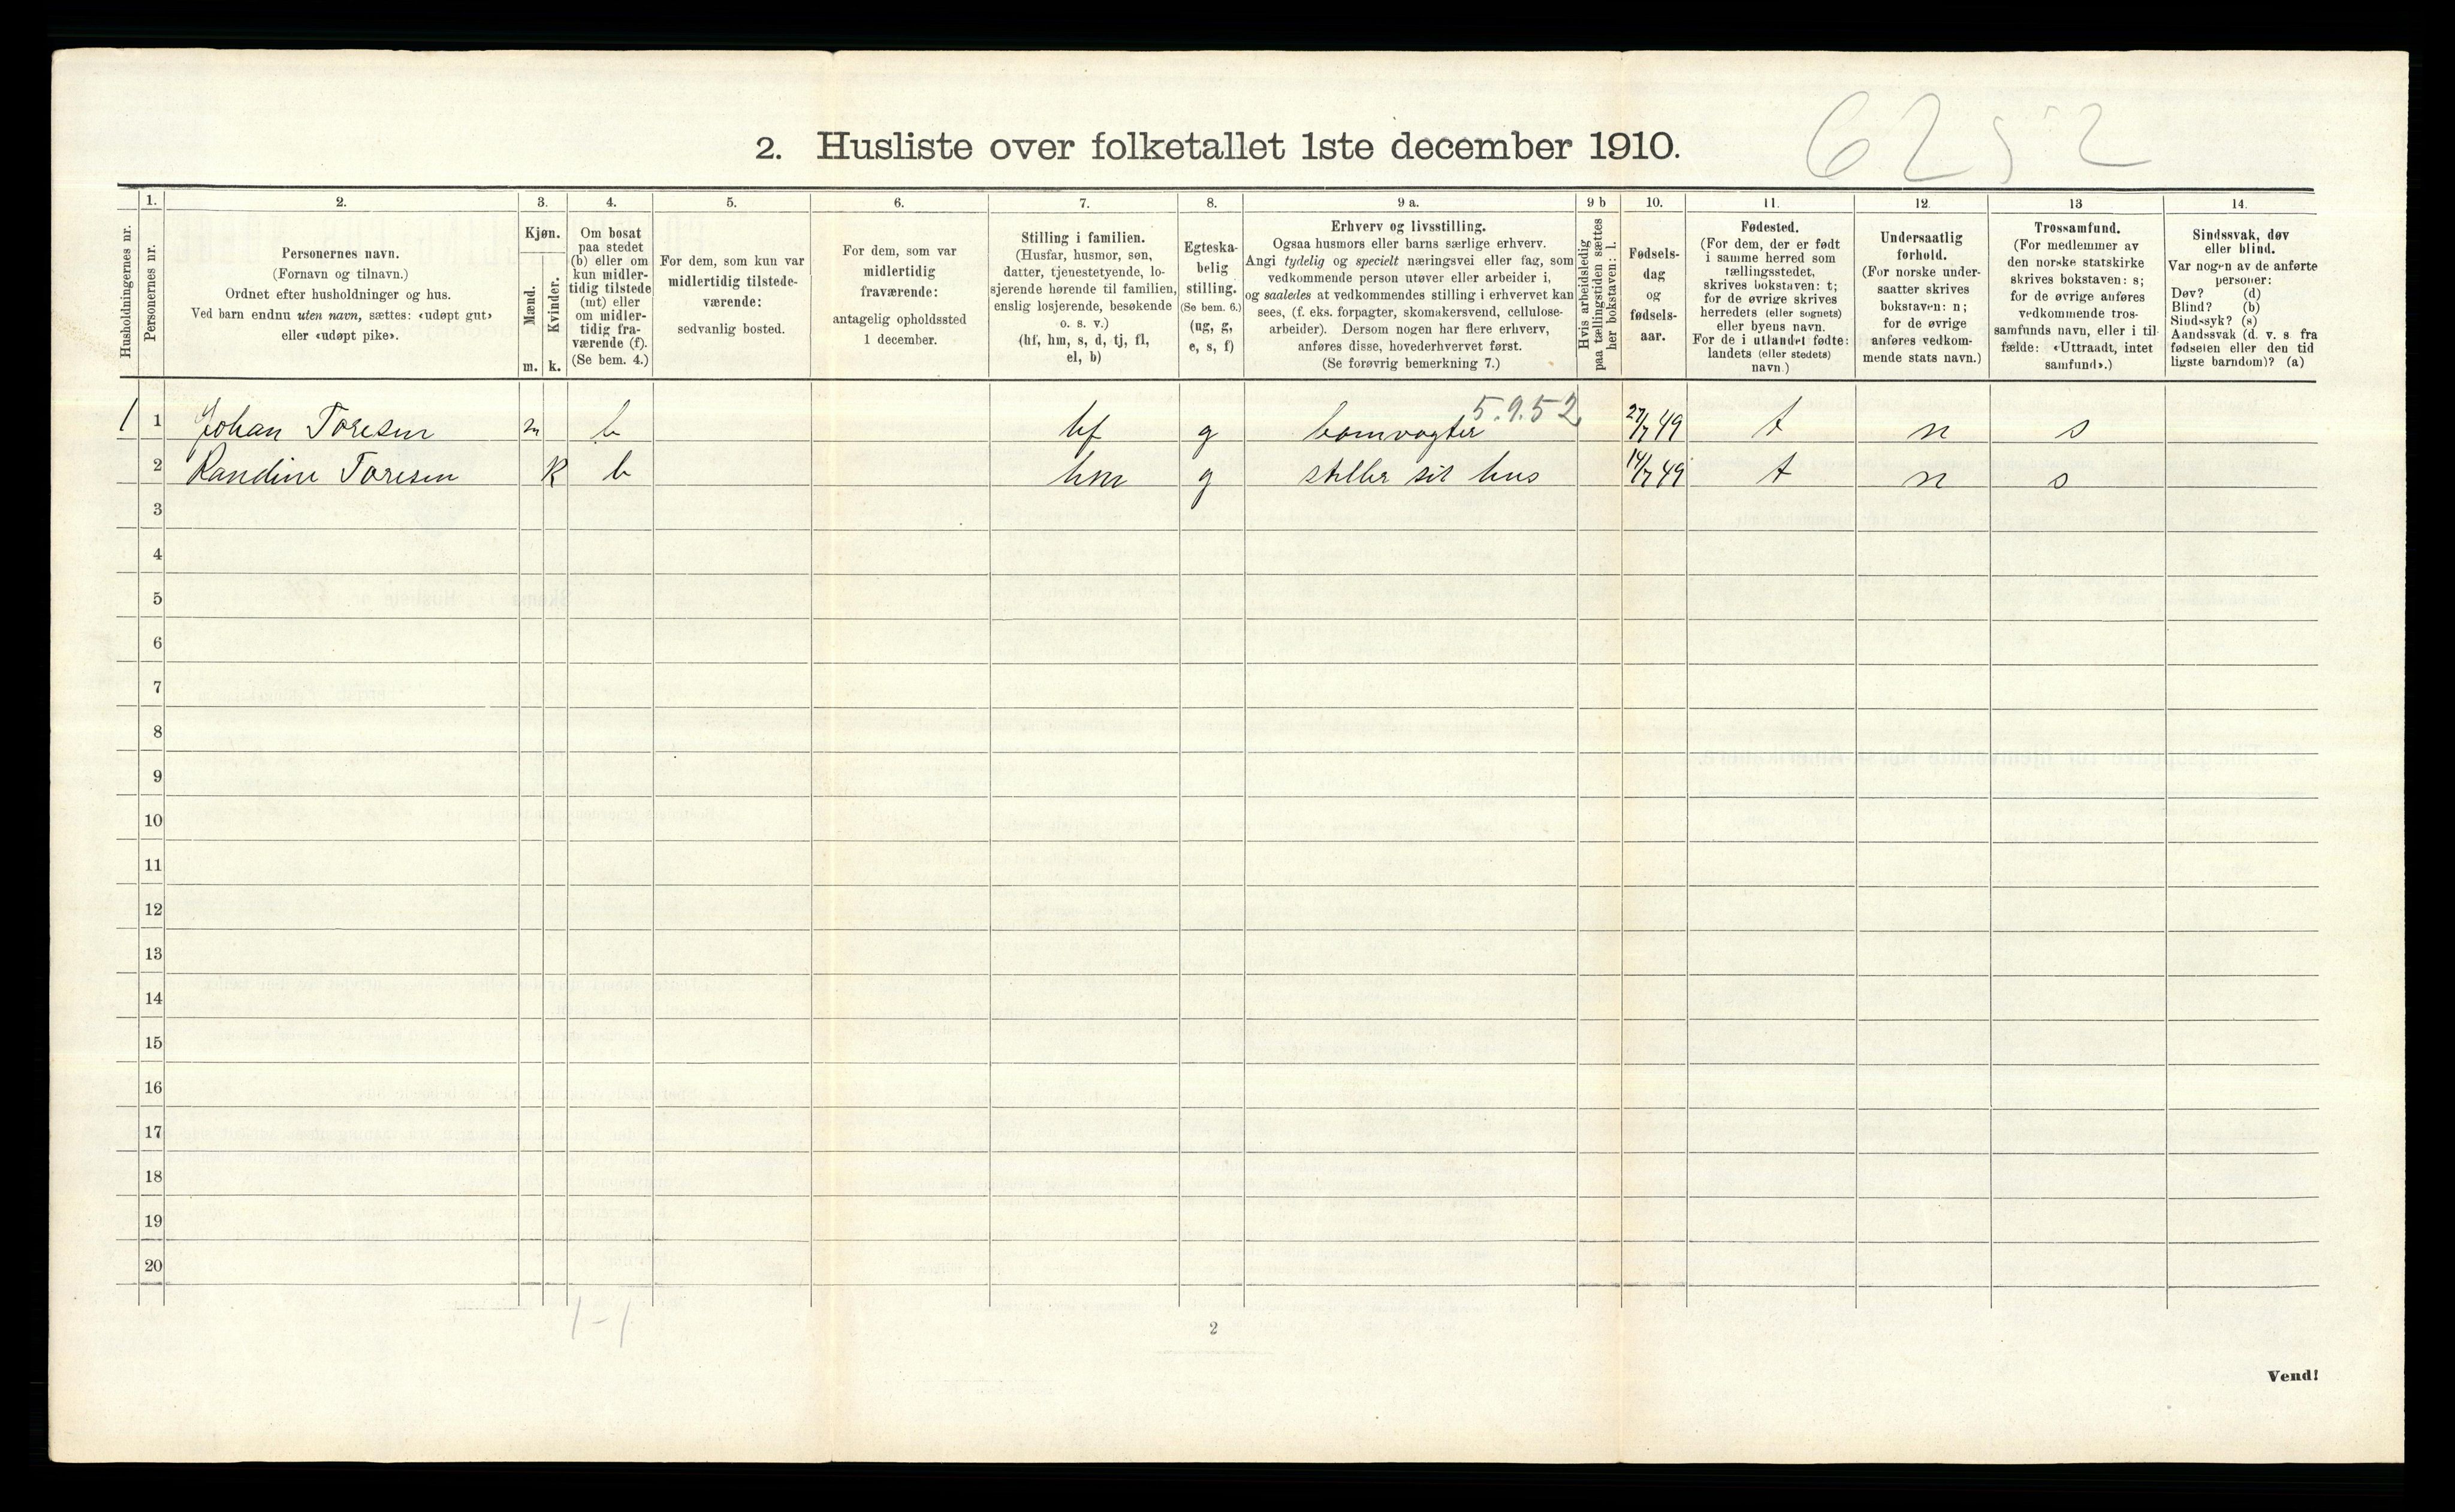 6252
2. Husliste over folketallet 1ste december 1910.
Husholdningernes nr.
1.
Personernes nr.
2.
Personernes navn.
(Fornavn og tilnavn.)
Ordnet efter husholdninger og hus.
Ved barn endnu uten navn, sættes: «udøpt gut»
eller «udøpt pike».
3.
Kjøn.
Mænd.
m.
Kvinder.
k.
4.
Om bosat
paa stedet
(b) eller om
kun midler-
tidig tilstede
(mt) eller
om midler-
tidig fra-
værende (f).
(Se bem. 4.)
5.
For dem, som kun var
midlertidig tilstede-
værende:
sedvanlig bosted.
6.
For dem, som var
midlertidig
fraværende:
antagelig opholdssted
1 december.
7.
Stilling i familien.
(Husfar, husmor, søn,
datter, tjenestetyende, lo-
sjerende hørende til familien,
enslig losjerende, besøkende
o. s. v.)
(hf, hm, s, d, tj, fl,
el, b)
8.
Egteska-
belig
stilling.
(Se bem. 6.)
(ug, g,
e, s, f)
9 a.
Erhverv og livsstilling.
Ogsaa husmors eller barns særlige erhverv.
Angi tydelig og specielt næringsvei eller fag, som
vedkommende person utøver eller arbeider i,
og saaledes at vedkommendes stilling i erhvervet kan
sees, (f. eks. forpagter, skomakersvend, cellulose-
arbeider). Dersom nogen har flere erhverv,
anføres disse, hovederhvervet først.
(Se forøvrig bemerkning 7.)
9 b
Hvis arbeidsledig
paa tællingstiden sættes
her bokstaven: l.
10.
Fødsels-
dag
og
fødsels-
aar.
11.
Fødested.
(For dem, der er født
i samme herred som
tællingsstedet,
skrives bokstaven: t;
for de øvrige skrives
herredets (eller sognets)
eller byens navn.
For de i utlandet fødte:
landets (eller stedets)
navn.)
12.
Undersaatlig
forhold.
(For norske under-
saatter skrives
bokstaven: n;
for de øvrige
anføres vedkom-
mende stats navn.)
13
Trossamfund.
(For medlemmer av
den norske statskirke
skrives bokstaven: s;
for de øvrige anføres
vedkommende tros-
samfunds navn, eller i til-
fælde: «Uttraadt, intet
samfund».)
14.
Sindssvak, døv
eller blind.
Var nogen av de anførte
personer:
Døv? (d)
Blind? (b)
Sindssyk? (s)
Aandssvak (d. v. s. fra
fødselen eller den tid
ligste barndom)? (a)
1 1 Johan Toresen m b hf g bomvogter 5.9.52 27/7 49 t n s
2 Randine Toresen k b hm g steller sit hus 14/7 49 t n s
3
4
5
6
7
8
9
10
11
12
13
14
15
16
17
18
19
20
1 - 1
2
Vend!